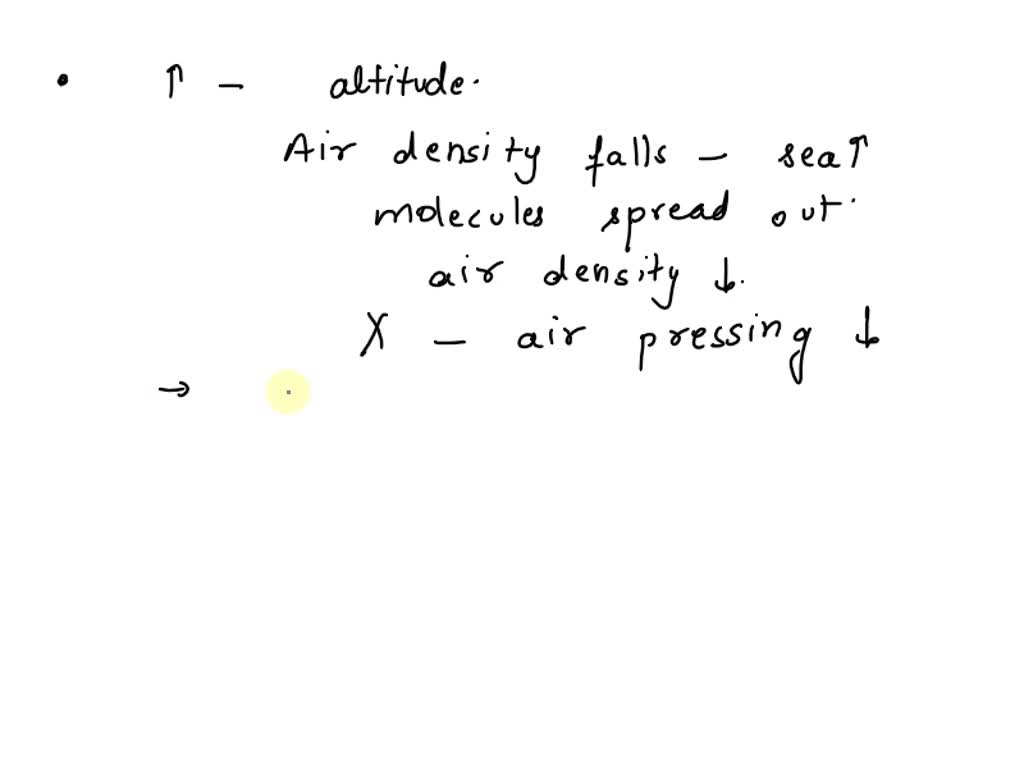 • ↑ – altitude.
Air density falls – sea↑
molecules spread out.
air density ↓.
X – air pressing ↓
→